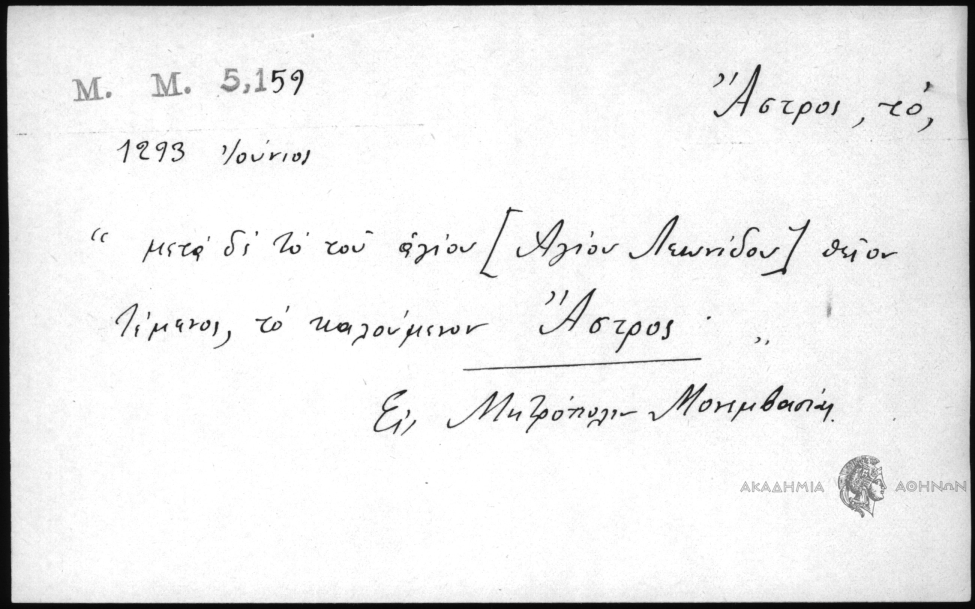 Μ. Μ. 5,159
Ἄστρος, τό,
1293 Ἰούνιος
“ μετά δέ τό τοῦ ἁγίου [Ἁγίου Λεωνίδου] θεῖον
τέμενος, τό καλούμενον Ἄστρος · „
Εἰς Μητρόπολιν Μονεμβασίας.
ΑΚΑΔΗΜΙΑ ΑΘΗΝΩΝ